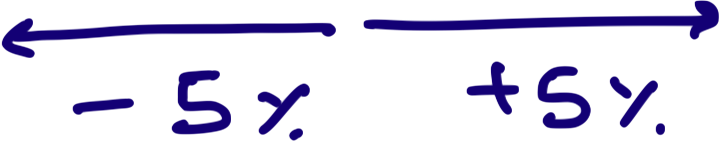 - 5% +5%